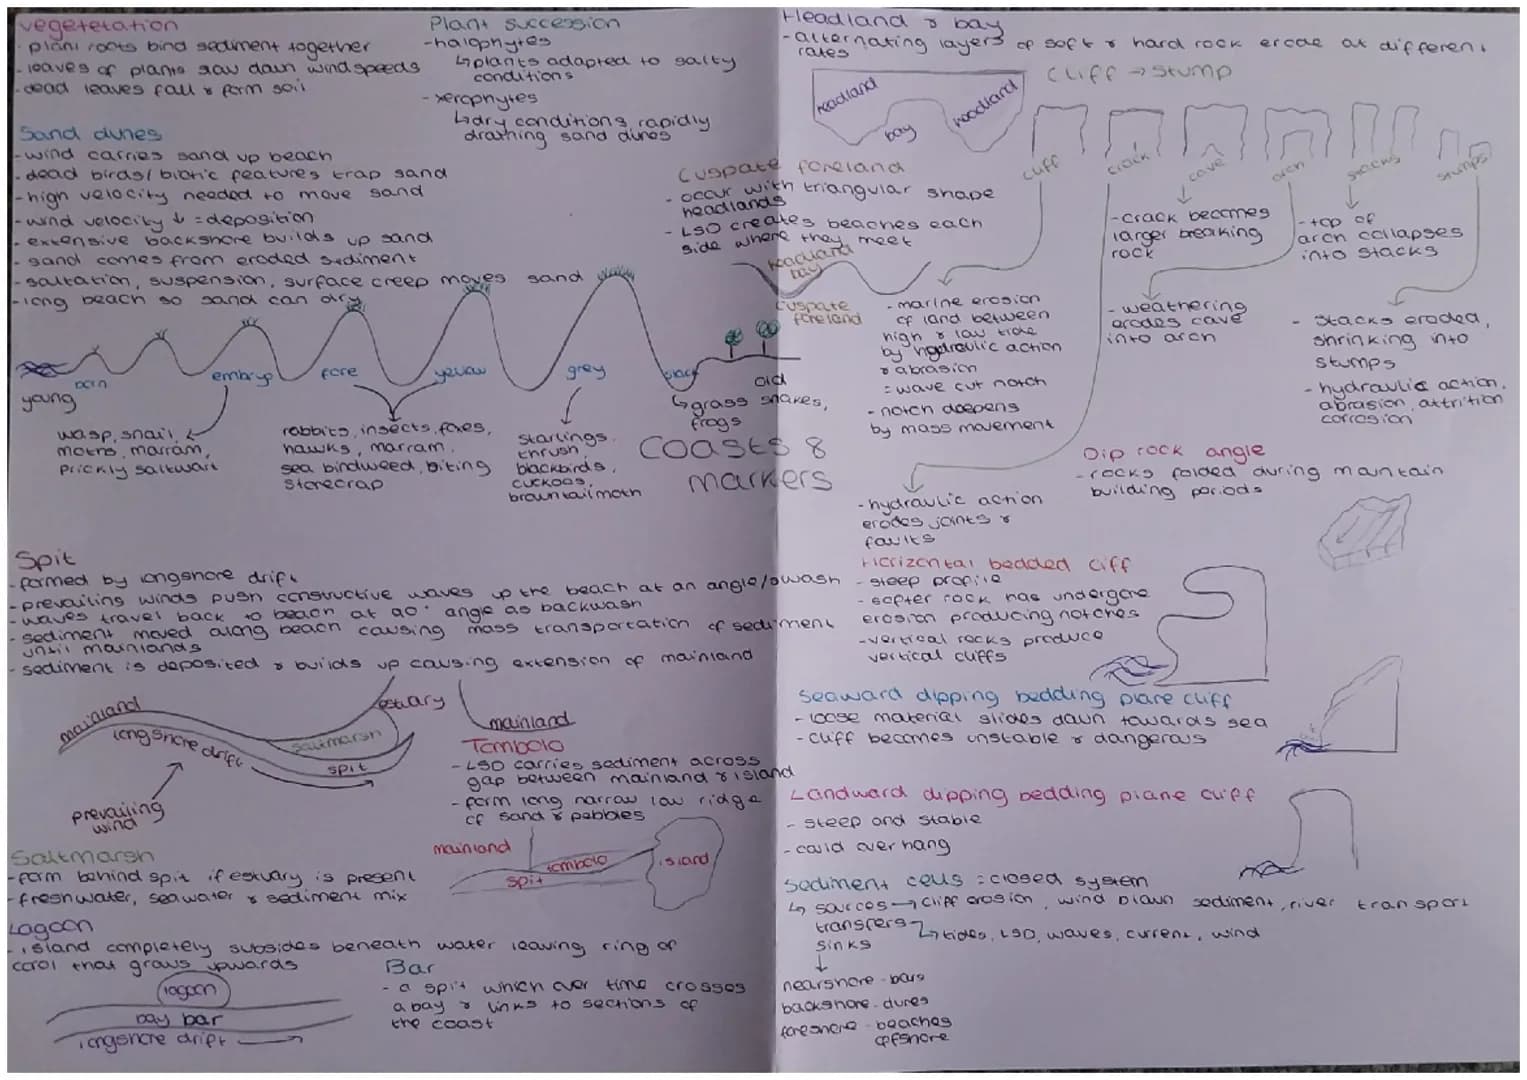 vegetetation
- plant roots bind sediment together
- leaves of plants slow down wind speeds
- dead leaves fall & form soil
Plant succession
- halophytes
↳ plants adapted to salty
conditions
- xerophytes
↳ dry conditions rapidly
drathing sand dunes
Sand dunes
- wind carries sand up beach
- dead birds/biotic features trap sand
- high velocity needed to move sand
- wind velocity ↓ = deposition
- extensive backshore builds up sand
- sand comes from eroded sediment
- saltation, suspension, surface creep moves sand
- long beach so sand can dry
embryo
fore
yellow
grey
slack
old
young
↳ grass snakes,
frogs
wasp, snail,
moths, marram,
prickly saltwort
rabbits, insects, foxes,
hawks, marram,
sea bindweed, biting
stonecrop
starlings,
thrush,
blackbirds,
cuckoos,
browntail moth
Coasts 8
markers
Spit
- formed by longshore drift
- prevailing winds push constructive waves up the beach at an angle/swash
- waves travel back to beach at 90° angle as backwash
- sediment moved along beach causing mass transportation of sediment
until mainlands
- sediment is deposited & builds up causing extension of mainland
mainland
longshore drift
estuary
saltmarsh
spit
mainland
prevailing
wind
Tombolo
- LSD carries sediment across
gap between mainland & island
- form long narrow low ridge
of sand & pebbles
mainland
tombolo
spit
island
Saltmarsh
- form behind spit if estuary is present
- freshwater, seawater & sediment mix
Lagoon
- island completely subsides beneath water leaving ring of
coral that grows upwards
lagoon
bay bar
longshore drift →
Bar
- a spit which over time crosses
a bay & links to sections of
the coast
Headland & bay
- alternating layers of soft & hard rock erode at different
rates
headland
bay
headland
Cliff → stump
cliff
crack
cave
arch
stacks
stumps
Cuspate foreland
- occur with triangular shape
headlands
- LSD creates beaches each
side where they meet
headland
bay
cuspate
foreland
- marine erosion
of land between
high & low tide
by hydraulic action
& abrasion
= wave cut notch
- notch deepens
by mass movement
- crack becomes
larger breaking
rock
- top of
arch collapses
into stacks
- weathering
erodes cave
into arch
- stacks eroded,
shrinking into
stumps
- hydraulic action,
abrasion, attrition
corrosion
- hydraulic action
erodes joints &
faults
Dip rock angle
- rocks folded during mountain
building periods
Horizontal bedded cliff
- steep profile
- softer rock has undergone
erosion producing notches
- vertical rocks produce
vertical cliffs
Seaward dipping bedding plane cliff
- loose material slides down towards sea
- cliff becomes unstable & dangerous
Landward dipping bedding plane cliff
- steep and stable
- could over hang
Sediment cells = closed system
↳ sources → cliff erosion, wind blown sediment, river transport
transfers → tides, LSD, waves, current, wind
sinks
↓
nearshore - bars
backshore - dunes
foreshore - beaches
offshore